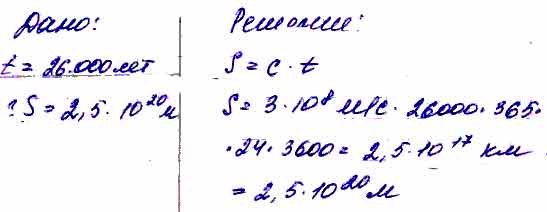 Дано:
t = 26.000 лет
? S = 2,5 · 10²⁰ м
Решение:
S = c · t
S = 3 · 10⁸ м/с · 26000 · 365 ·
· 24 · 3600 = 2,5 · 10¹⁷ км
= 2,5 · 10²⁰ м